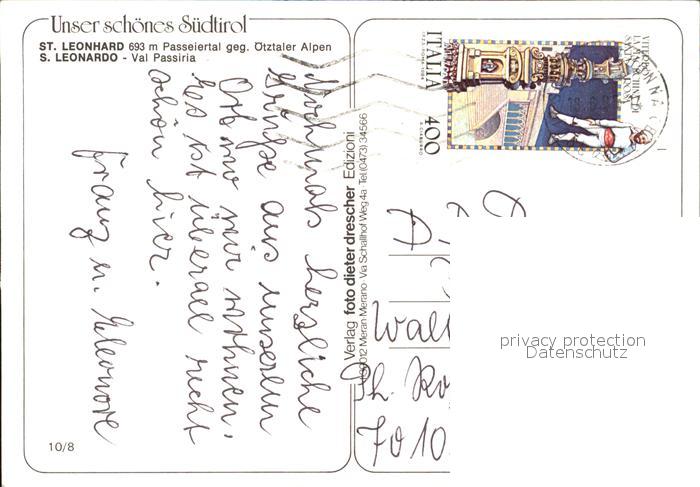 Unser schönes Südtirol
ST. LEONHARD 693 m Passeiertal geg. Ötztaler Alpen
S. LEONARDO - Val Passiria
Nochmals herzliche
Grüße aus unserem
Ort wo wir wohnen.
Es ist überall recht
schön hier.
Franz u. Eleonore
10/8
Verlag foto dieter drescher Edizioni
I-39012 Meran-Merano · Via Schallhof Weg 4a · Tel. (0473) 34566
ITALIA 400
VITERBO
LA MACCHINA DI
S. ROSA
A
7010
privacy protection
Datenschutz